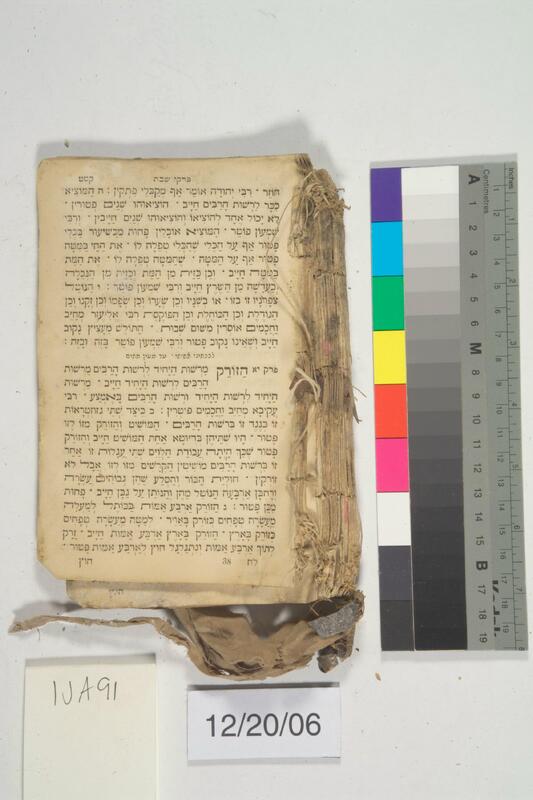 פרקי שבת קסט
חוזר · רבי יהודה אומר אף מקבלי פתקין : ה המוציא
ככר לרשות הרבים חייב · הוציאוהו שנים פטורין ·
לא יכול אחד להוציאו והוציאוהו שנים חייבין · ורבי
שמעון פוטר · המוציא אוכלין פחות מכשיעור בכלי
פטור אף על הכלי שהכלי טפלה לו · את החי במטה
פטור אף על המטה · שהמטה טפלה לו · את המת
במטה חייב · וכן כזית מן המת וכזית מן הנבלה
כעדשה מן השרץ חייב ורבי שמעון פוטר : ו הנוטל
צפרניו זו בזו · או בשניו וכן שערו וכן שפמו וכן זקנו וכן
הגודלת וכן הכוחלת וכן הפוקסת רבי אליעזר מחייב
וחכמים אוסרין משום שבות · התולש מעציץ נקוב
חייב ושאינו נקוב פטור ורבי שמעון פוטר בזה ובזה :
פרק יא הזורק מרשות היחיד לרשות הרבים מרשות
הרבים לרשות היחיד חייב · מרשות
היחיד לרשות היחיד ורשות הרבים באמצע · רבי
עקיבא מחיב וחכמים פוטרין : ב כיצד שתי גזוזטראות
זו כנגד זו ברשות הרבים · המושיט והזורק מזו לזו
פטור · היו שתיהן בדיוטא אחת המושיט חייב והזורק
פטור שכך היתה עבודת הלוים שתי עגלות זו אחר
זו ברשות הרבים מושיטין הקרשים מזו לזו אבל לא
זורקין · חולית הבור והסלע שהן גבוהים עשרה
ורחבן ארבעה הנוטל מהן והנותן על גבן חייב · פחות
מכן פטור : ג הזורק ארבע אמות בכותל למעלה
מעשרה טפחים כזורק באויר · למטה מעשרה טפחים
כזורק בארץ · הזורק בארץ ארבע אמות חייב · זרק
לתוך ארבע אמות ונתגלגל חוץ לארבע אמות פטור ·
לח 38 חוץ
IJA91
12/20/06
Centimetres
inches
A 1 2 3 4 5 M 8 9 10 11 12 13 14 15 B 17 18 19